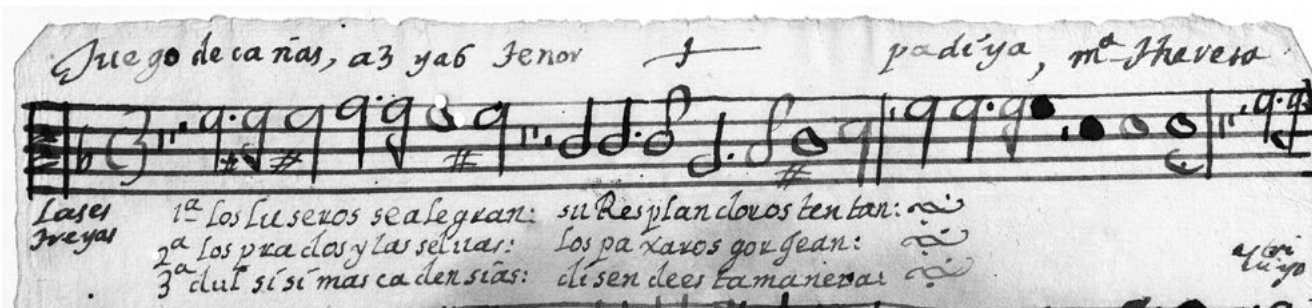 Juego de cañas, a3 ya6 tenor padiya, mª Theresa
Lases treyas
1ª los luseros sealegran: su Resplandor ostentan:
2ª los prados y las seluas: los paxaros gorgean:
3ª dulsisimas cadensias: disen deesta manera: